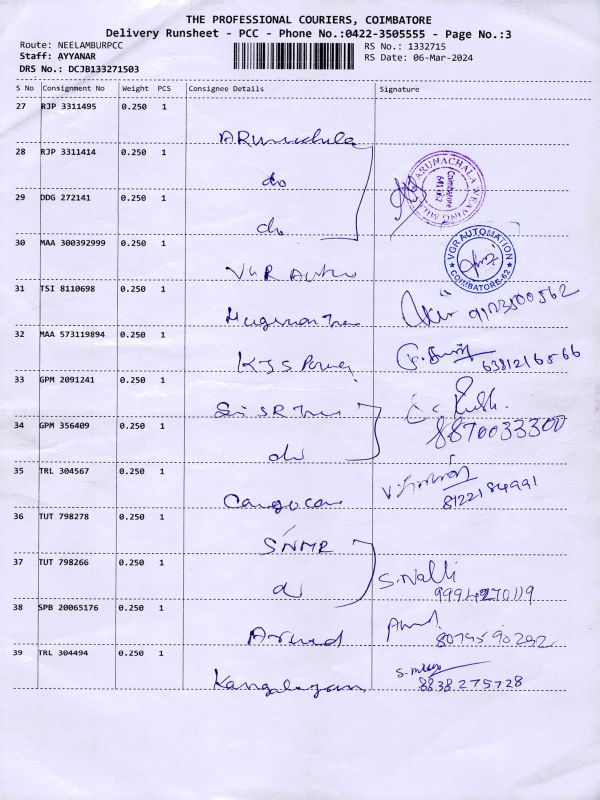 THE PROFESSIONAL COURIERS, COIMBATORE
Delivery Runsheet - PCC - Phone No.:0422-3505555 - Page No.:3
Route: NEELAMBURPCC
Staff: AYYANAR
DRS No.: DCJB133271503
RS No.: 1332715
RS Date: 06-Mar-2024
S No Consignment No Weight PCS Consignee Details Signature
27 RJP 3311495 0.250 1 Arunachala
28 RJP 3311414 0.250 1 do
29 DDG 272141 0.250 1 do
ARUNACHALA WEAVING MILLS
Coimbatore
641 062
30 MAA 300392999 0.250 1 VGR Auto
VGR AUTOMATION
COIMBATORE-62
31 TSI 8110698 0.250 1
32 MAA 573119894 0.250 1 KJS Power
6381216566
33 GPM 2091241 0.250 1 Sri SR
34 GPM 356409 0.250 1 do
8870033300
35 TRL 304567 0.250 1
8122184991
36 TUT 798278 0.250 1 SNMR
37 TUT 798266 0.250 1 do
S. Nalli
9994270119
38 SPB 20065176 0.250 1 Arvind
39 TRL 304494 0.250 1
8838275728